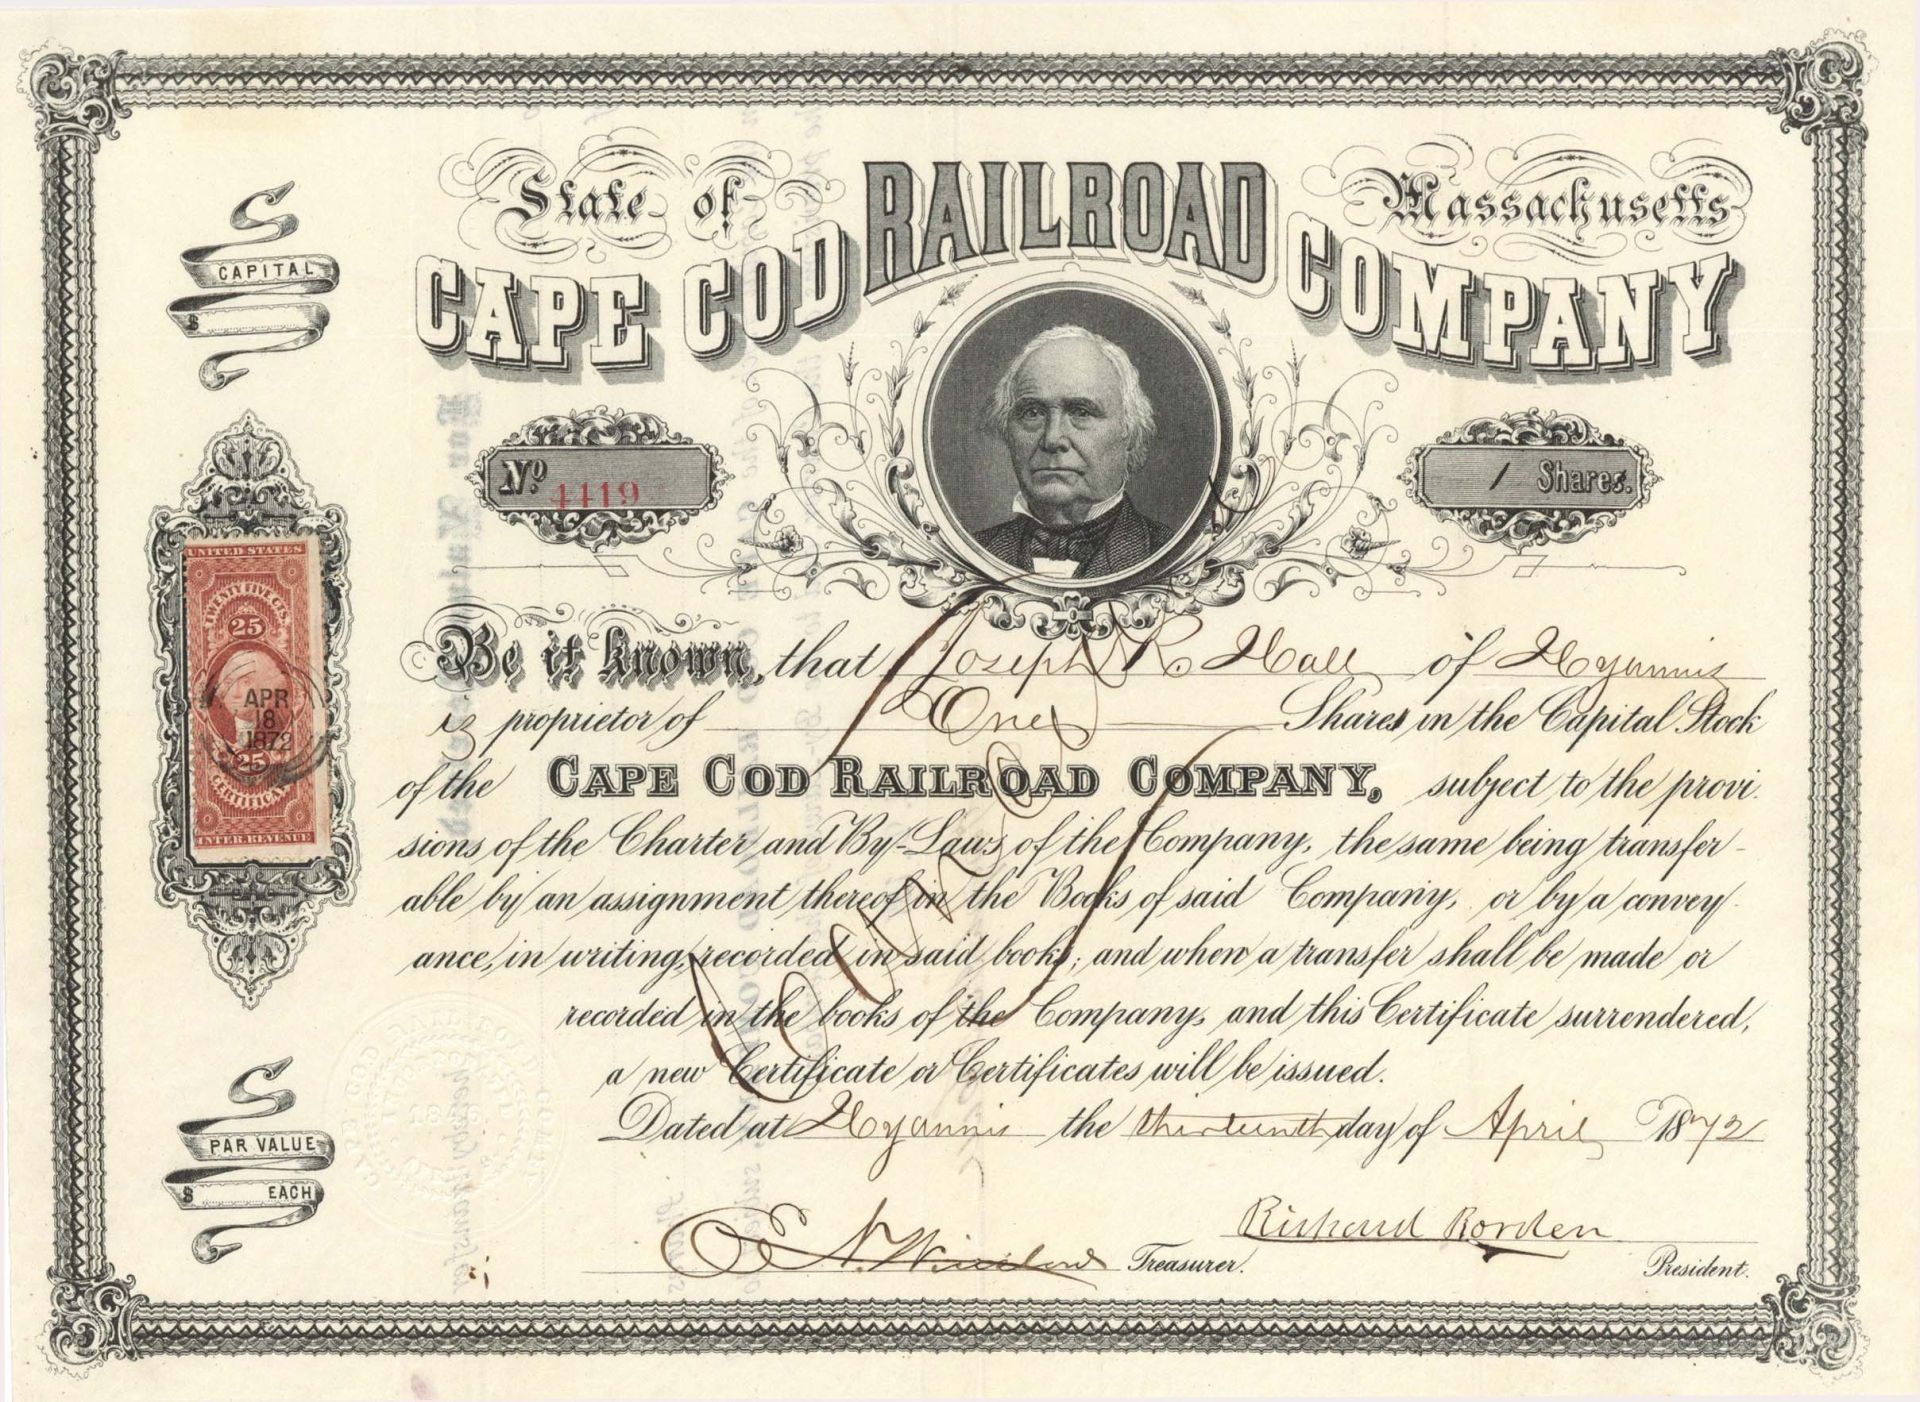 State of Massachusetts
CAPE COD RAILROAD COMPANY
CAPITAL
$
No. 4419
1 Shares.
UNITED STATES
TWENTY FIVE CTS.
25
APR
18
1872
25
CERTIFICATE
INTER. REVENUE
Be it known, that Joseph R. Hall of Hyannis
is proprietor of One Shares in the Capital Stock
of the CAPE COD RAILROAD COMPANY, subject to the provi-
sions of the Charter and By-Laws of the Company, the same being transfer-
able by an assignment thereof in the Books of said Company, or by a convey-
ance, in writing, recorded in said books; and when a transfer shall be made or
recorded in the books of the Company, and this Certificate surrendered,
a new Certificate or Certificates will be issued.
Cancelled
Dated at Hyannis the thirteenth day of April 1872
PAR VALUE
$ EACH
CAPE COD RAILROAD COMPANY
1846
E. N. Winslow Treasurer.
Richard Borden
President.